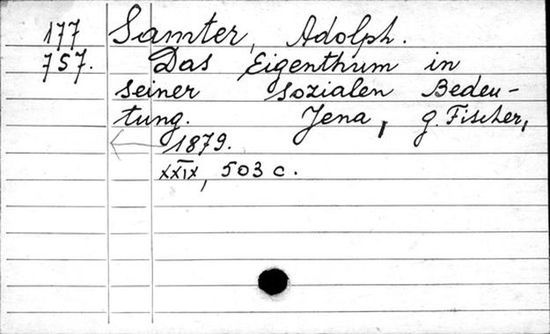 177 Samter, Adolph.
757. Das Eigenthum in
seiner sozialen Bedeu-
tung. Jena, G. Fischer,
1879.
XXIX, 503 c.